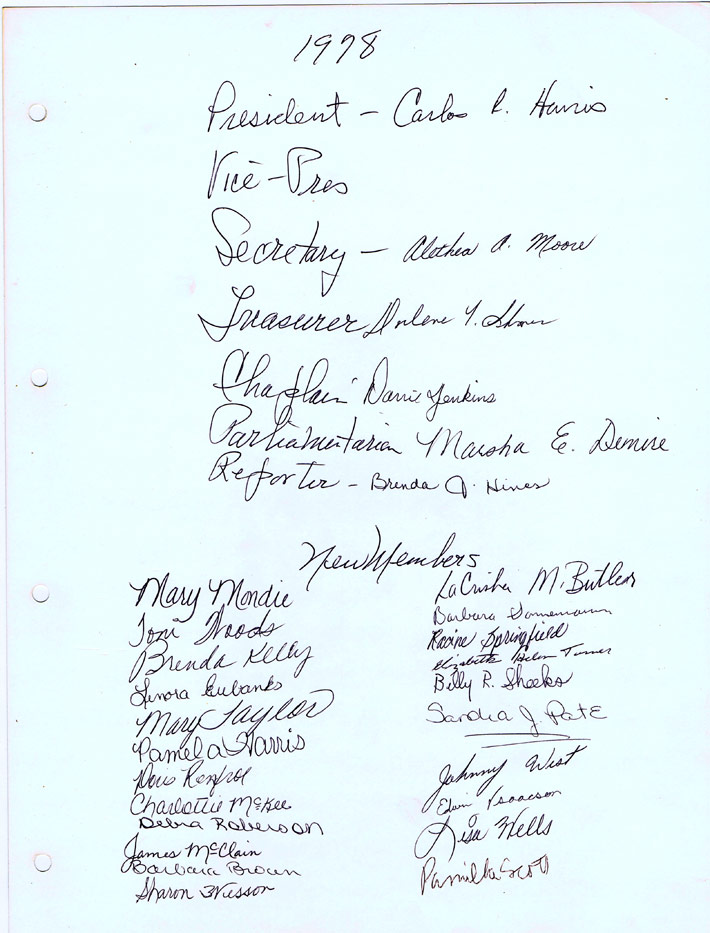 1978
President - Carlos R. Harris
Vice-Pres
Secretary - Alethea A. Moore
Treasurer Arlene Y.
Chaplain Darrie Jenkins
Parliamentarian Marsha E. Demire
Reporter - Brenda J. Hines
New Members
Mary Mondie
Toni Woods
Brenda Kelly
Lenora Eubanks
Mary Taylor
Pamela Harris
Doris Renfroe
Charlottie McKee
Debra Roberson
James McClain
Barbara Brown
Sharon Wesson
LaCrisha M. Butler
Barbara
Racine Springfield
Elizabeth Helen Turner
Billy R. Sheeks
Sandra J. Pate
Johnny West
Edwin Isaacson
Lisa Wells
Pamilla Scott